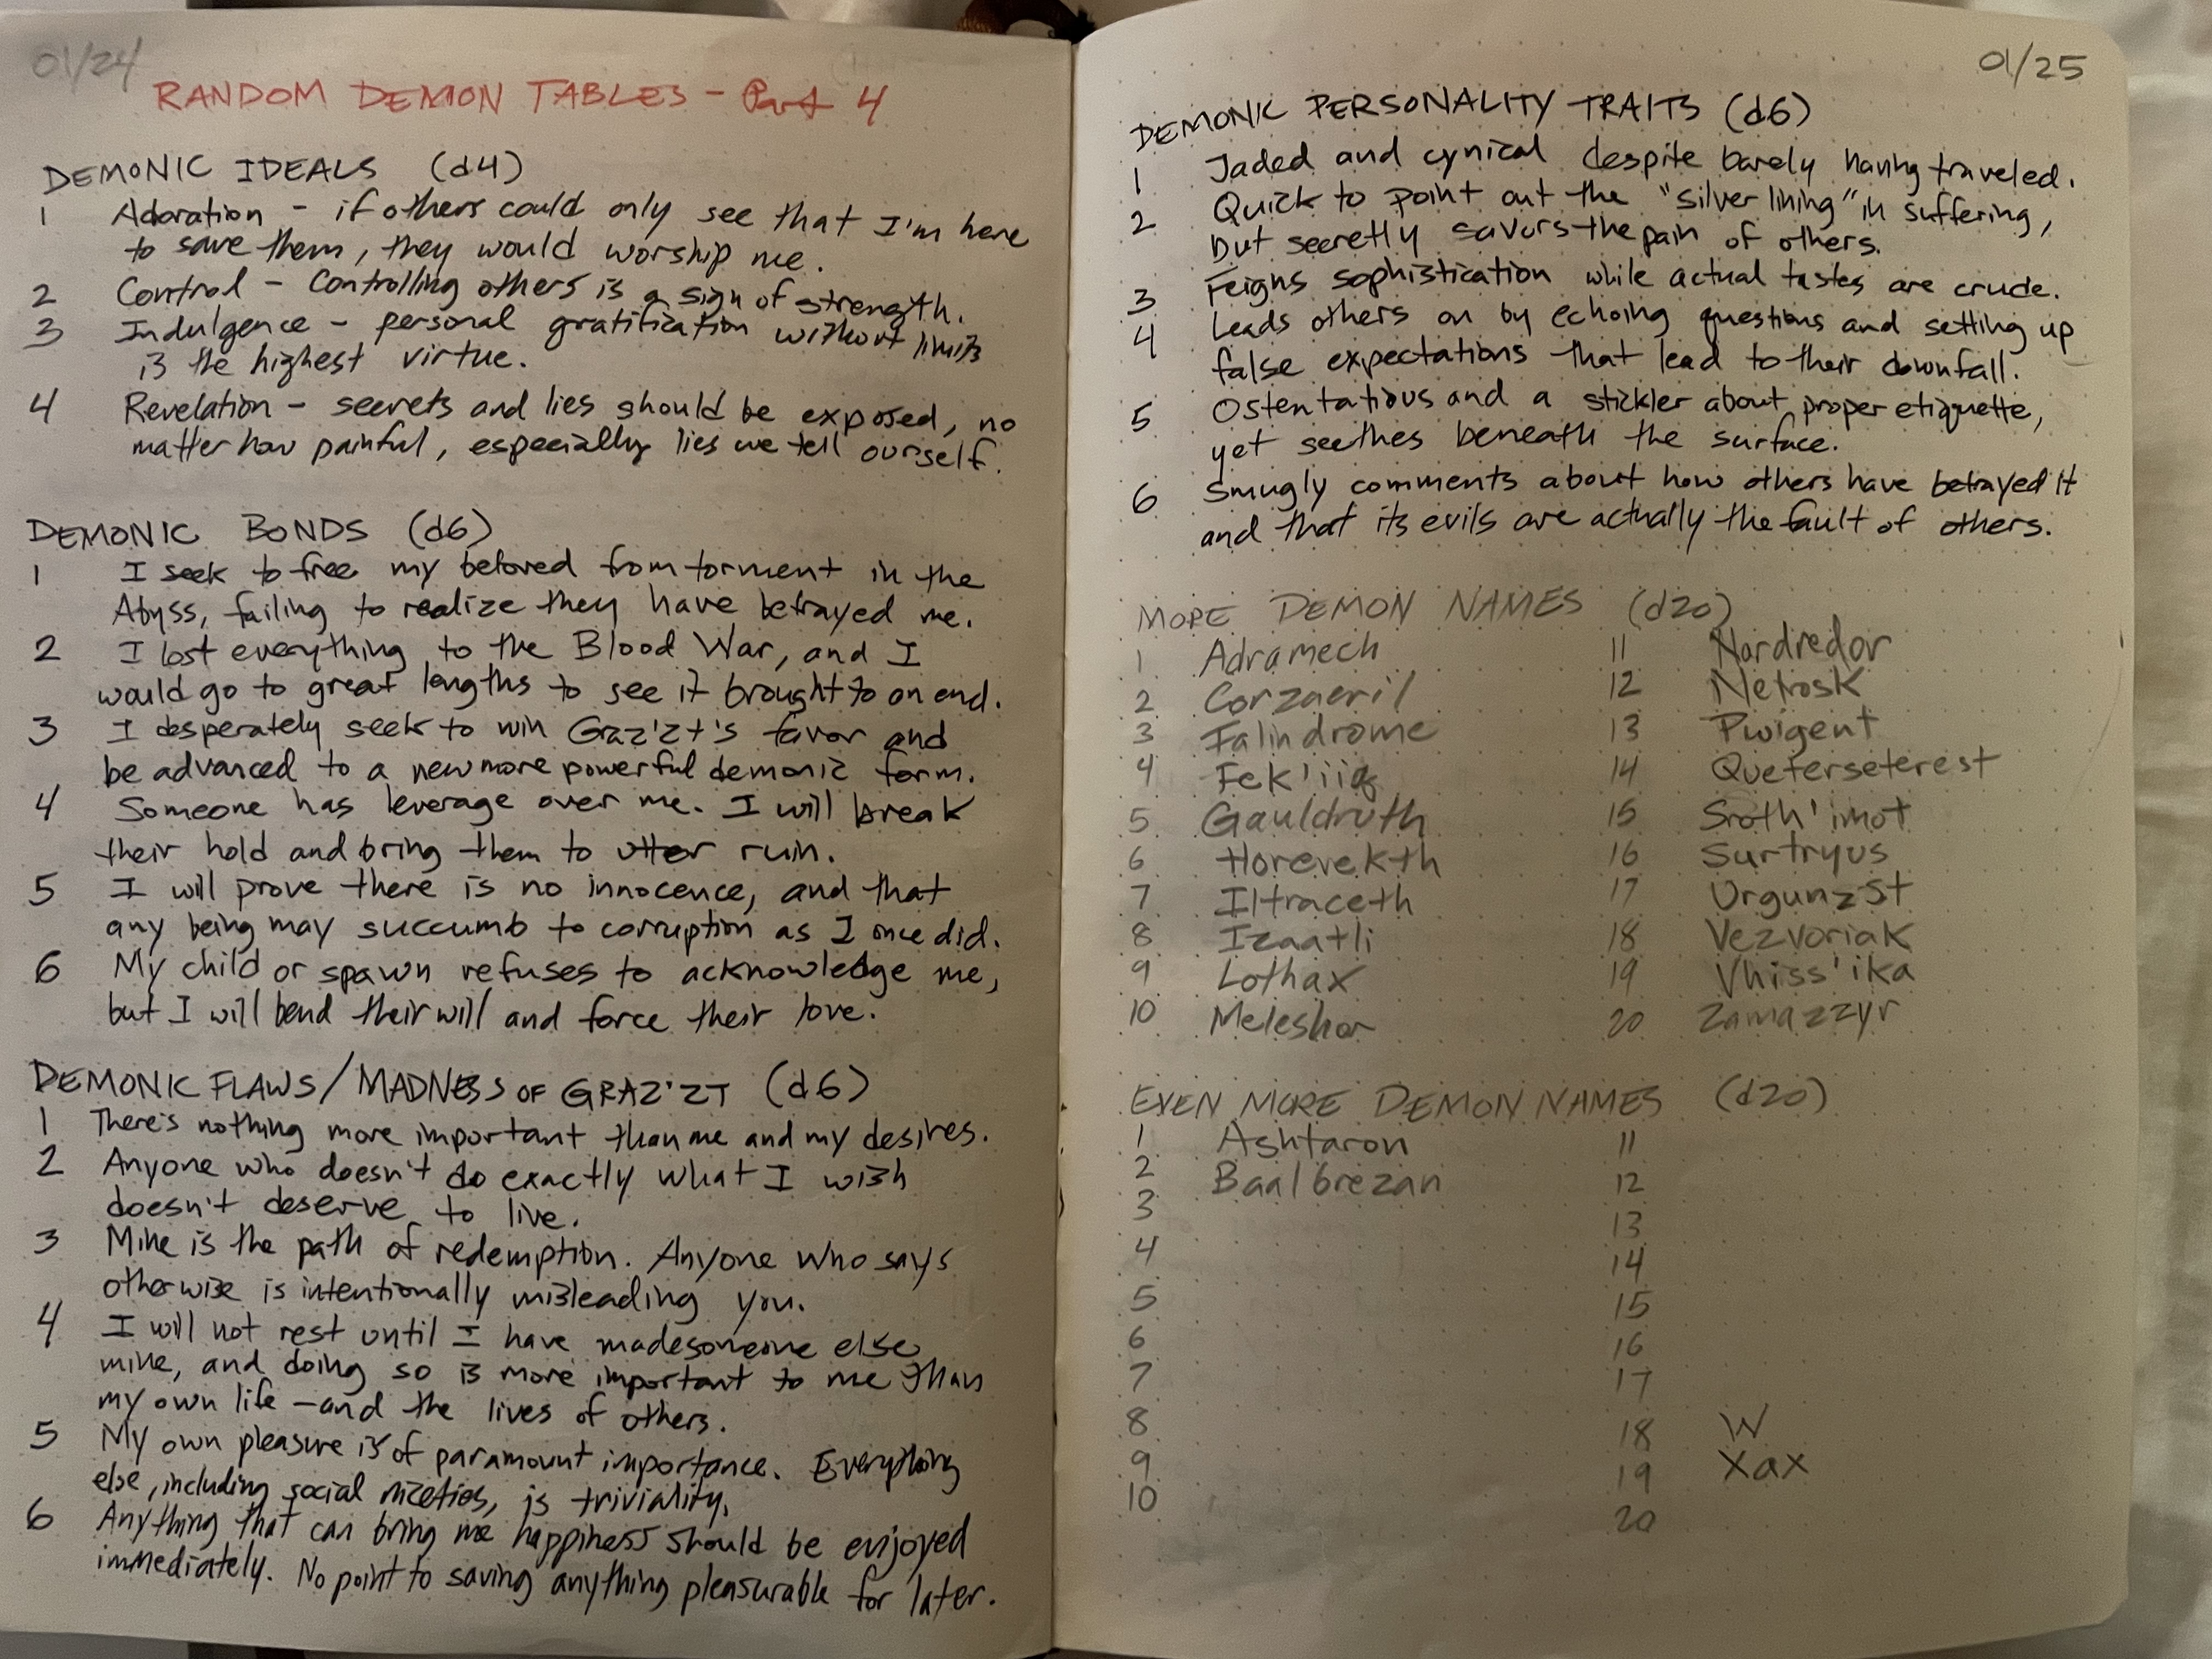 01/24
RANDOM DEMON TABLES - Part 4
DEMONIC IDEALS (d4)
1 Adoration - if others could only see that I'm here
to save them, they would worship me.
2 Control - controlling others is a sign of strength.
3 Indulgence - personal gratification without limits
is the highest virtue.
4 Revelation - secrets and lies should be exposed, no
matter how painful, especially lies we tell ourself.
DEMONIC BONDS (d6)
1 I seek to free my beloved from torment in the
Abyss, failing to realize they have betrayed me.
2 I lost everything to the Blood War, and I
would go to great lengths to see it brought to an end.
3 I desperately seek to win Graz'zt's favor and
be advanced to a new more powerful demonic form.
4 Someone has leverage over me. I will break
their hold and bring them to utter ruin.
5 I will prove there is no innocence, and that
any being may succumb to corruption as I once did.
6 My child or spawn refuses to acknowledge me,
but I will bend their will and force their love.
DEMONIC FLAWS/MADNESS OF GRAZ'ZT (d6)
1 There's nothing more important than me and my desires.
2 Anyone who doesn't do exactly what I wish
doesn't deserve to live.
3 Mine is the path of redemption. Anyone who says
otherwise is intentionally misleading you.
4 I will not rest until I have made someone else
mine, and doing so is more important to me than
my own life - and the lives of others.
5 My own pleasure is of paramount importance. Everything
else, including social niceties, is triviality.
6 Anything that can bring me happiness should be enjoyed
immediately. No point to saving anything pleasurable for later.
01/25
DEMONIC PERSONALITY TRAITS (d6)
1 Jaded and cynical despite barely having traveled.
2 Quick to point out the "silver lining" in suffering,
but secretly savors the pain of others.
3 Feigns sophistication while actual tastes are crude.
4 Leads others on by echoing questions and setting up
false expectations that lead to their downfall.
5 Ostentatious and a stickler about proper etiquette,
yet seethes beneath the surface.
6 Smugly comments about how others have betrayed it
and that its evils are actually the fault of others.
MORE DEMON NAMES (d20)
1 Adramech
2 Corzaeril
3 Falindrome
4 Fek'iiq
5 Gauldruth
6 Horevekth
7 Iltraceth
8 Izaatli
9 Lothax
10 Meleshar
11 Nordredor
12 Netrosk
13 Pwigent
14 Queterseterest
15 Sroth'imot
16 Surtryus
17 Urgunzst
18 Vezvoriak
19 Vhiss'ika
20 Zamazzyr
EVEN MORE DEMON NAMES (d20)
1 Ashtaron
2 Baalbrezan
3
4
5
6
7
8
9
10
11
12
13
14
15
16
17
18 W
19 Xax
20